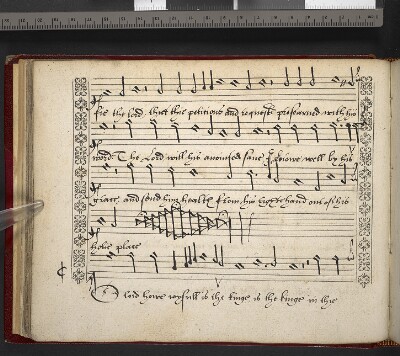 the lord, that thie petitions and request performed with his
word. The Lord will his anointed save I knowe well by his
grace, and send him health from his right hand out of his
holie place
O lord howe joyfull is the kinge is the kinge in thie